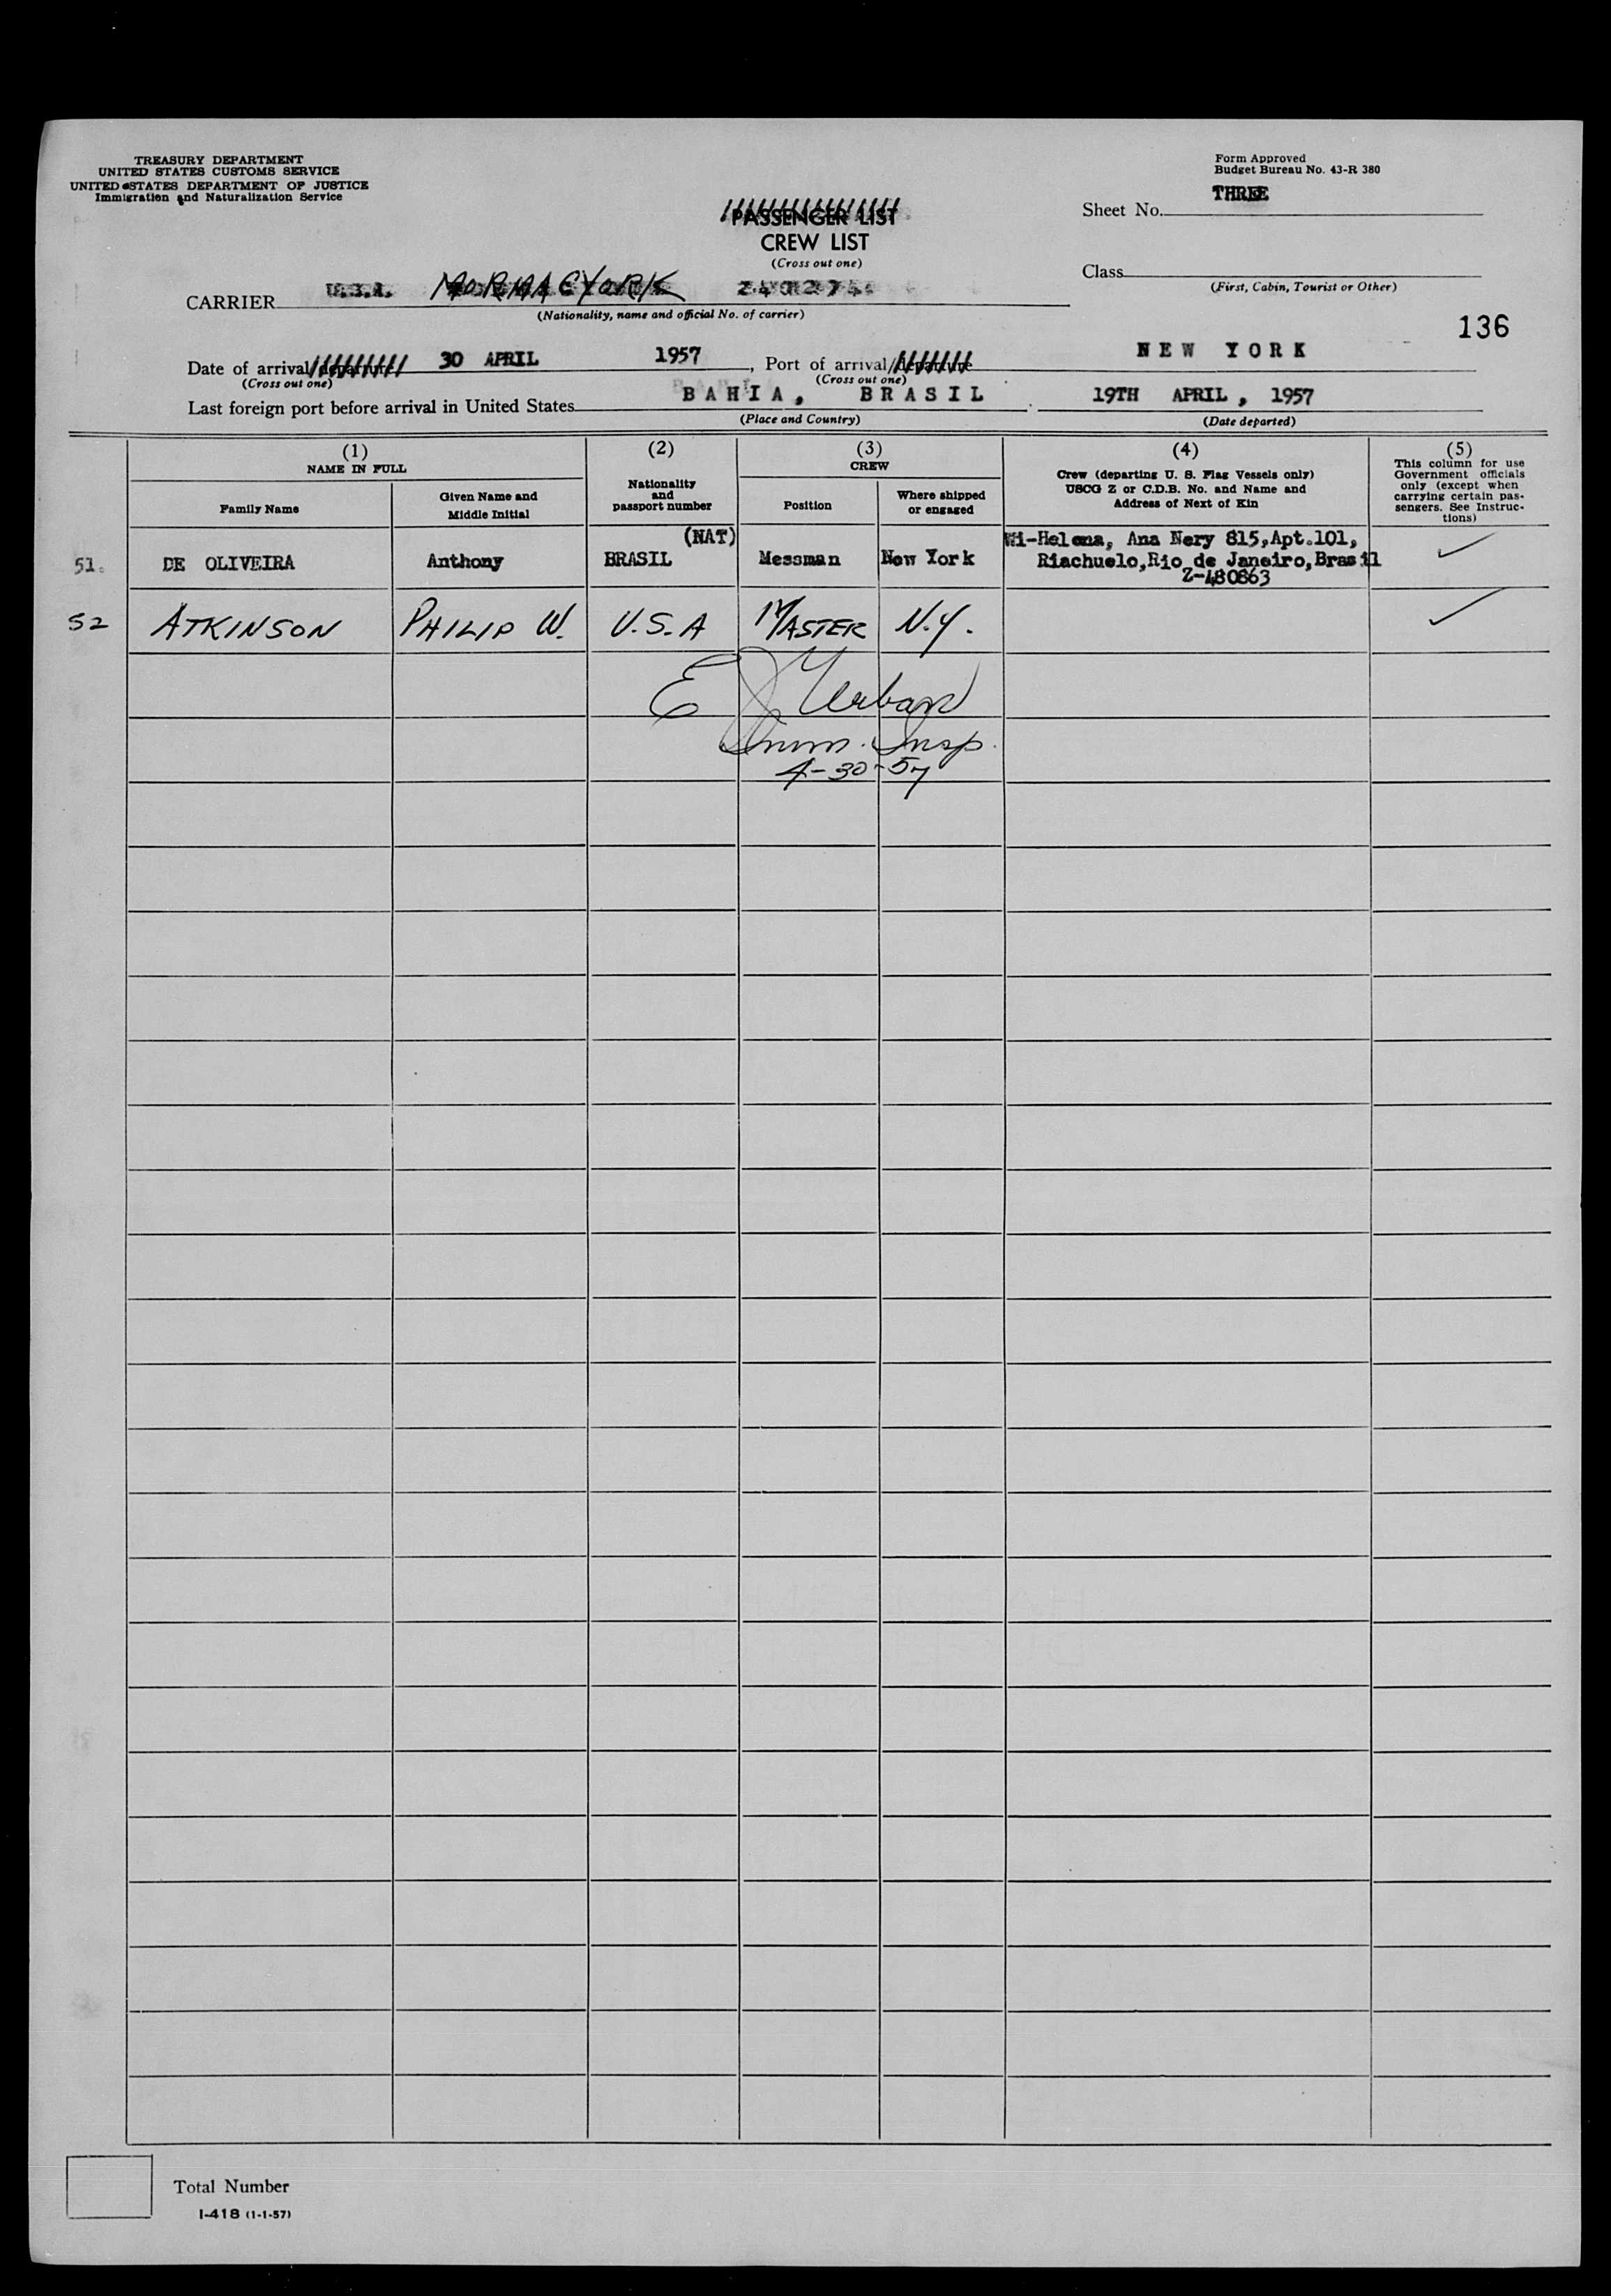 TREASURY DEPARTMENT
UNITED STATES CUSTOMS SERVICE
UNITED STATES DEPARTMENT OF JUSTICE
Immigration and Naturalization Service
Form Approved
Budget Bureau No. 43-R 380
Sheet No. THREE
PASSENGER LIST
CREW LIST
(Cross out one)
Class
(First, Cabin, Tourist or Other)
CARRIER U.S.A. MORMACYORK
(Nationality, name and official No. of carrier)
136
Date of arrival/departure 30 APRIL 1957, Port of arrival/departure NEW YORK
(Cross out one) (Cross out one)
Last foreign port before arrival in United States BAHIA, BRASIL 19TH APRIL, 1957
(Place and Country) (Date departed)
(1) (2) (3) (4) (5)
NAME IN FULL
Family Name
Given Name and
Middle Initial
Nationality
and
passport number
CREW
Position
Where shipped
or engaged
Crew (departing U. S. Flag Vessels only)
USCG Z or C.D.B. No. and Name and
Address of Next of Kin
This column for use
Government officials
only (except when
carrying certain pas-
sengers. See Instruc-
tions)
(NAT) Wi-Helena, Ana Nery 815, Apt.101,
51. DE OLIVEIRA Anthony BRASIL Messman New York Riachuelo, Rio de Janeiro, Brasil
Z-480863
52 ATKINSON PHILIP W. U.S.A MASTER N.Y.
E J Urban
Imm. Insp.
4-30-57
Total Number
I-418 (1-1-57)